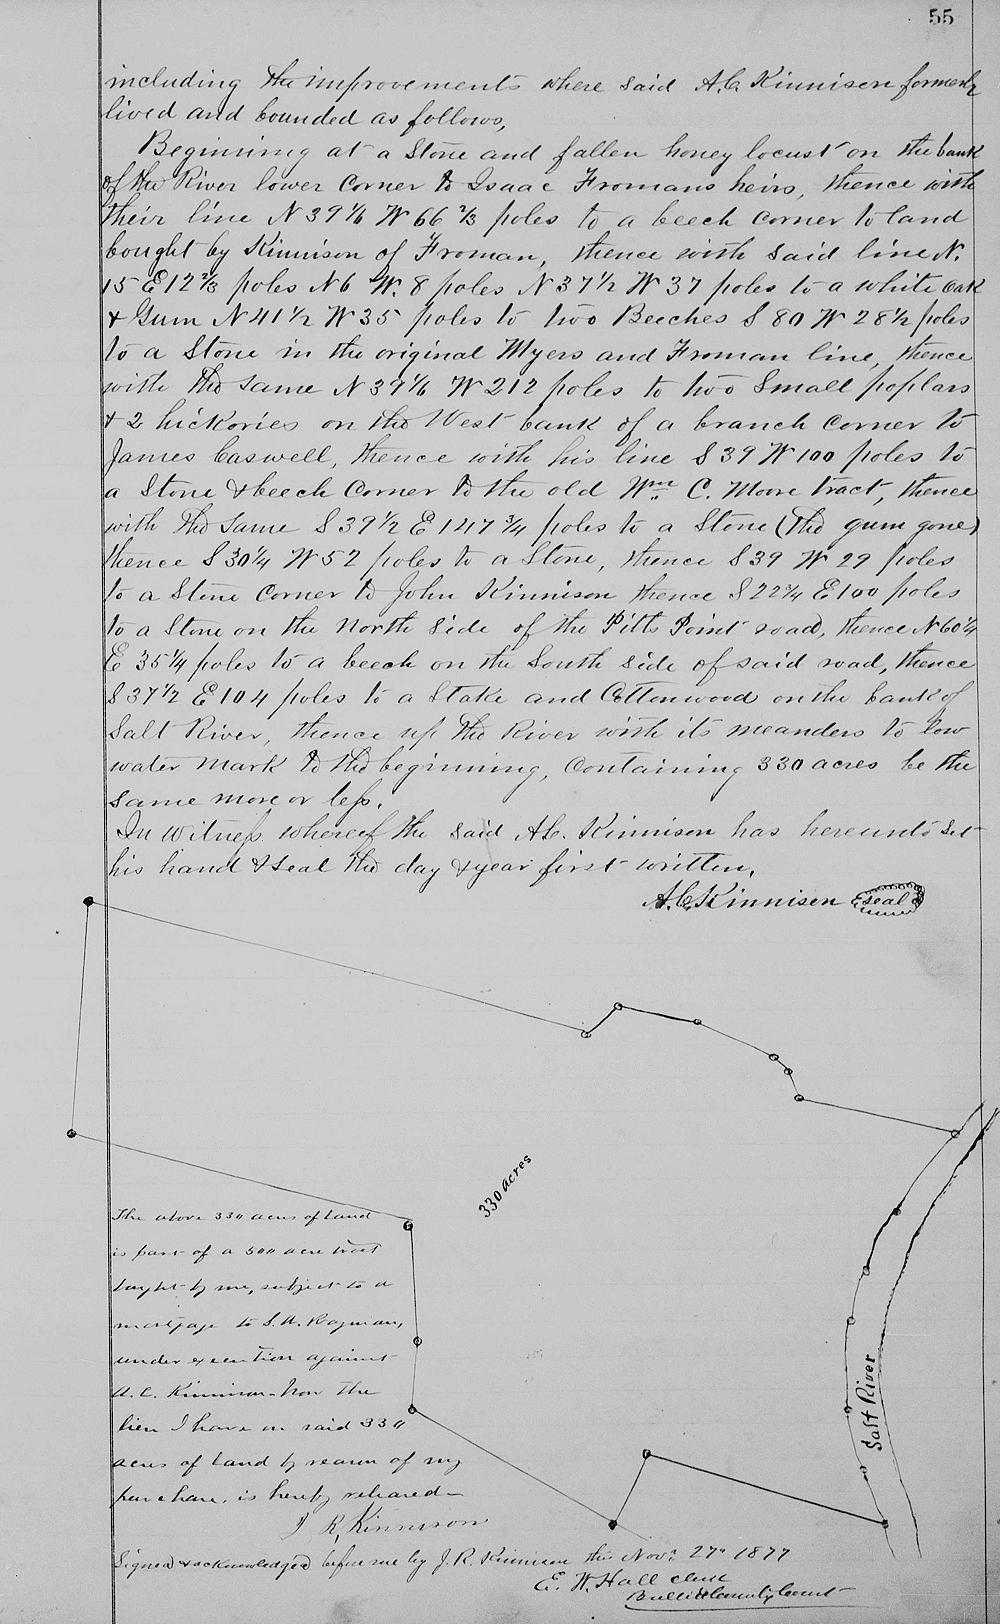 55
including the improvements where said A.C. Kinnison formerly
lived and bounded as follows,
Beginning at a Stone and fallen honey locust on the bank
of the River lower Corner to Isaac Fromans heirs, thence with
their line N 39 1/6 W 66 2/3 poles to a beech corner to land
bought by Kinnison of Froman, thence with said line N.
15 E 12 2/3 poles N 6 W. 8 poles N 37 1/2 W 37 poles to a white oak
& Gum N 41 1/2 W 35 poles to two Beeches S 80 W 28 1/2 poles
to a Stone in the original Myers and Froman line, thence
with the same N 39 1/6 W 212 poles to two Small poplars
& 2 hickories on the West bank of a branch corner to
James Caswell, thence with his line S 39 W 100 poles to
a Stone & beech Corner to the old Wm. C. Moore tract, thence
with the same S 39 1/2 E 147 3/4 poles to a Stone (the gum gone)
thence S 30 1/4 W 52 poles to a Stone, thence S 39 W 29 poles
to a Stone Corner to John Kinnison thence S 22 3/4 E 100 poles
to a Stone on the North Side of the Pitts Point road, thence N 60 1/4
E 35 1/4 poles to a beech on the South side of said road, thence
S 37 1/2 E 104 poles to a Stake and Cottonwood on the bank of
Salt River, thence up the River with its meanders to low
water mark to the beginning, Containing 330 acres be the
same more or less.
In Witness whereof the said A.C. Kinnison has hereunto Set
his hand & Seal the day & year first written.
A.C. Kinnison Seal
330 acres
The above 330 acres of land
is part of a 500 acre tract
bought by me, subject to a
mortgage to S.A.
under execution against
A.C. Kinnison - Now the
lien I have on said 330
acres of land by reason of my
purchase, is hereby released -
J R, Kinnison
Salt River
Signed & acknowledged before me by J.R. Kinnison this Nov. 27" 1877
E. W. Hall clerk
Bullitt County Court